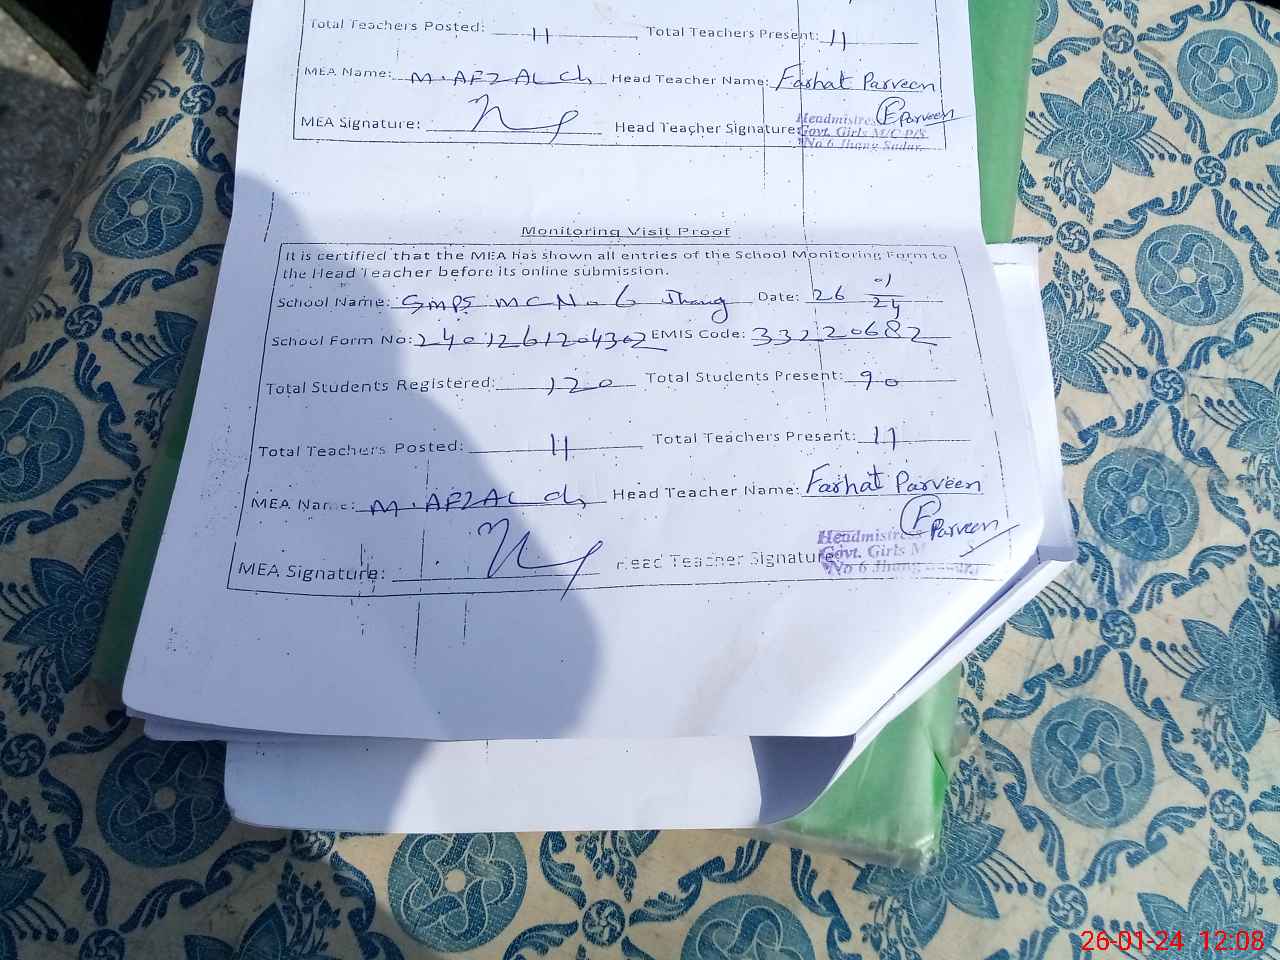 Total Teachers Posted: 11 Total Teachers Present: 11
MEA Name: M. AFZAL Ch Head Teacher Name: Farhat Parveen
MEA Signature: Head Teacher Signature: Parveen
Headmistres
Govt. Girls M/C P/S
No 6 Jhang Sadar.
Monitoring Visit Proof
It is certified that the MEA has shown all entries of the School Monitoring Form to
the Head Teacher before its online submission.
School Name: GMPS MC No 6 Jhang Date: 26 01 24
School Form No: 2401261204302 EMIS Code: 33220682
Total Students Registered: 120 Total Students Present: 90
Total Teachers Posted: 11 Total Teachers Present: 11
MEA Name: M. AFZAL Ch Head Teacher Name: Farhat Parveen
MEA Signature: Head Teacher Signature Parveen
Headmistres
Govt. Girls M
No 6 Jhang
26-01-24 12:08